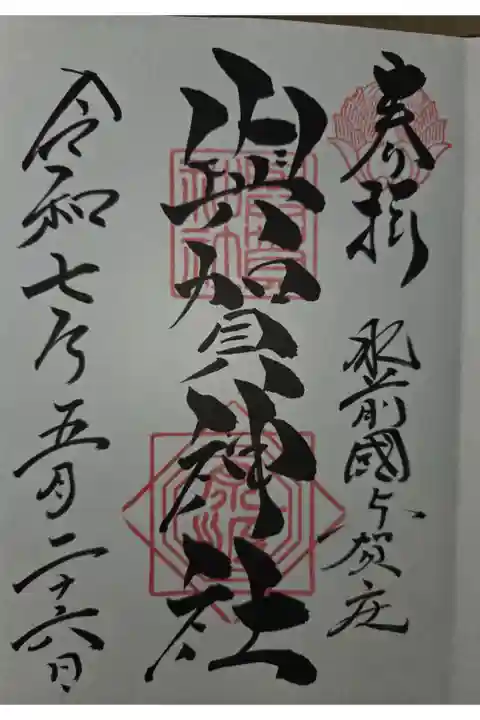 奉拝
肥前國与賀庄
與賀神社
令和七年五月二十六日